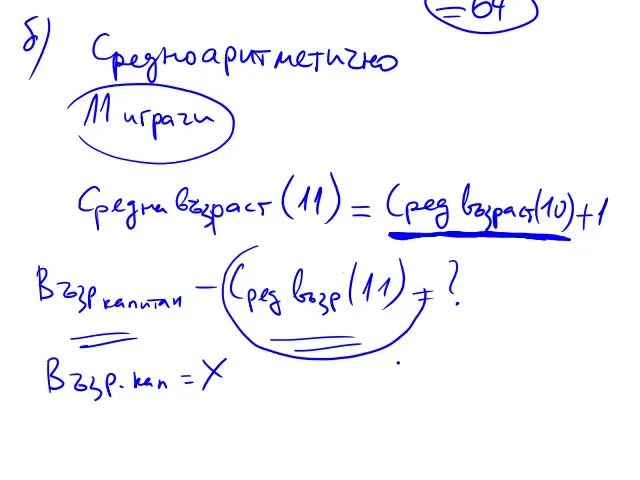 = 64
б) Средноаритметично
11 играчи
Средна възраст (11) = Сред възраст(10)+1
Възр капитан - Сред възр (11) = ?
Възр. кап = X